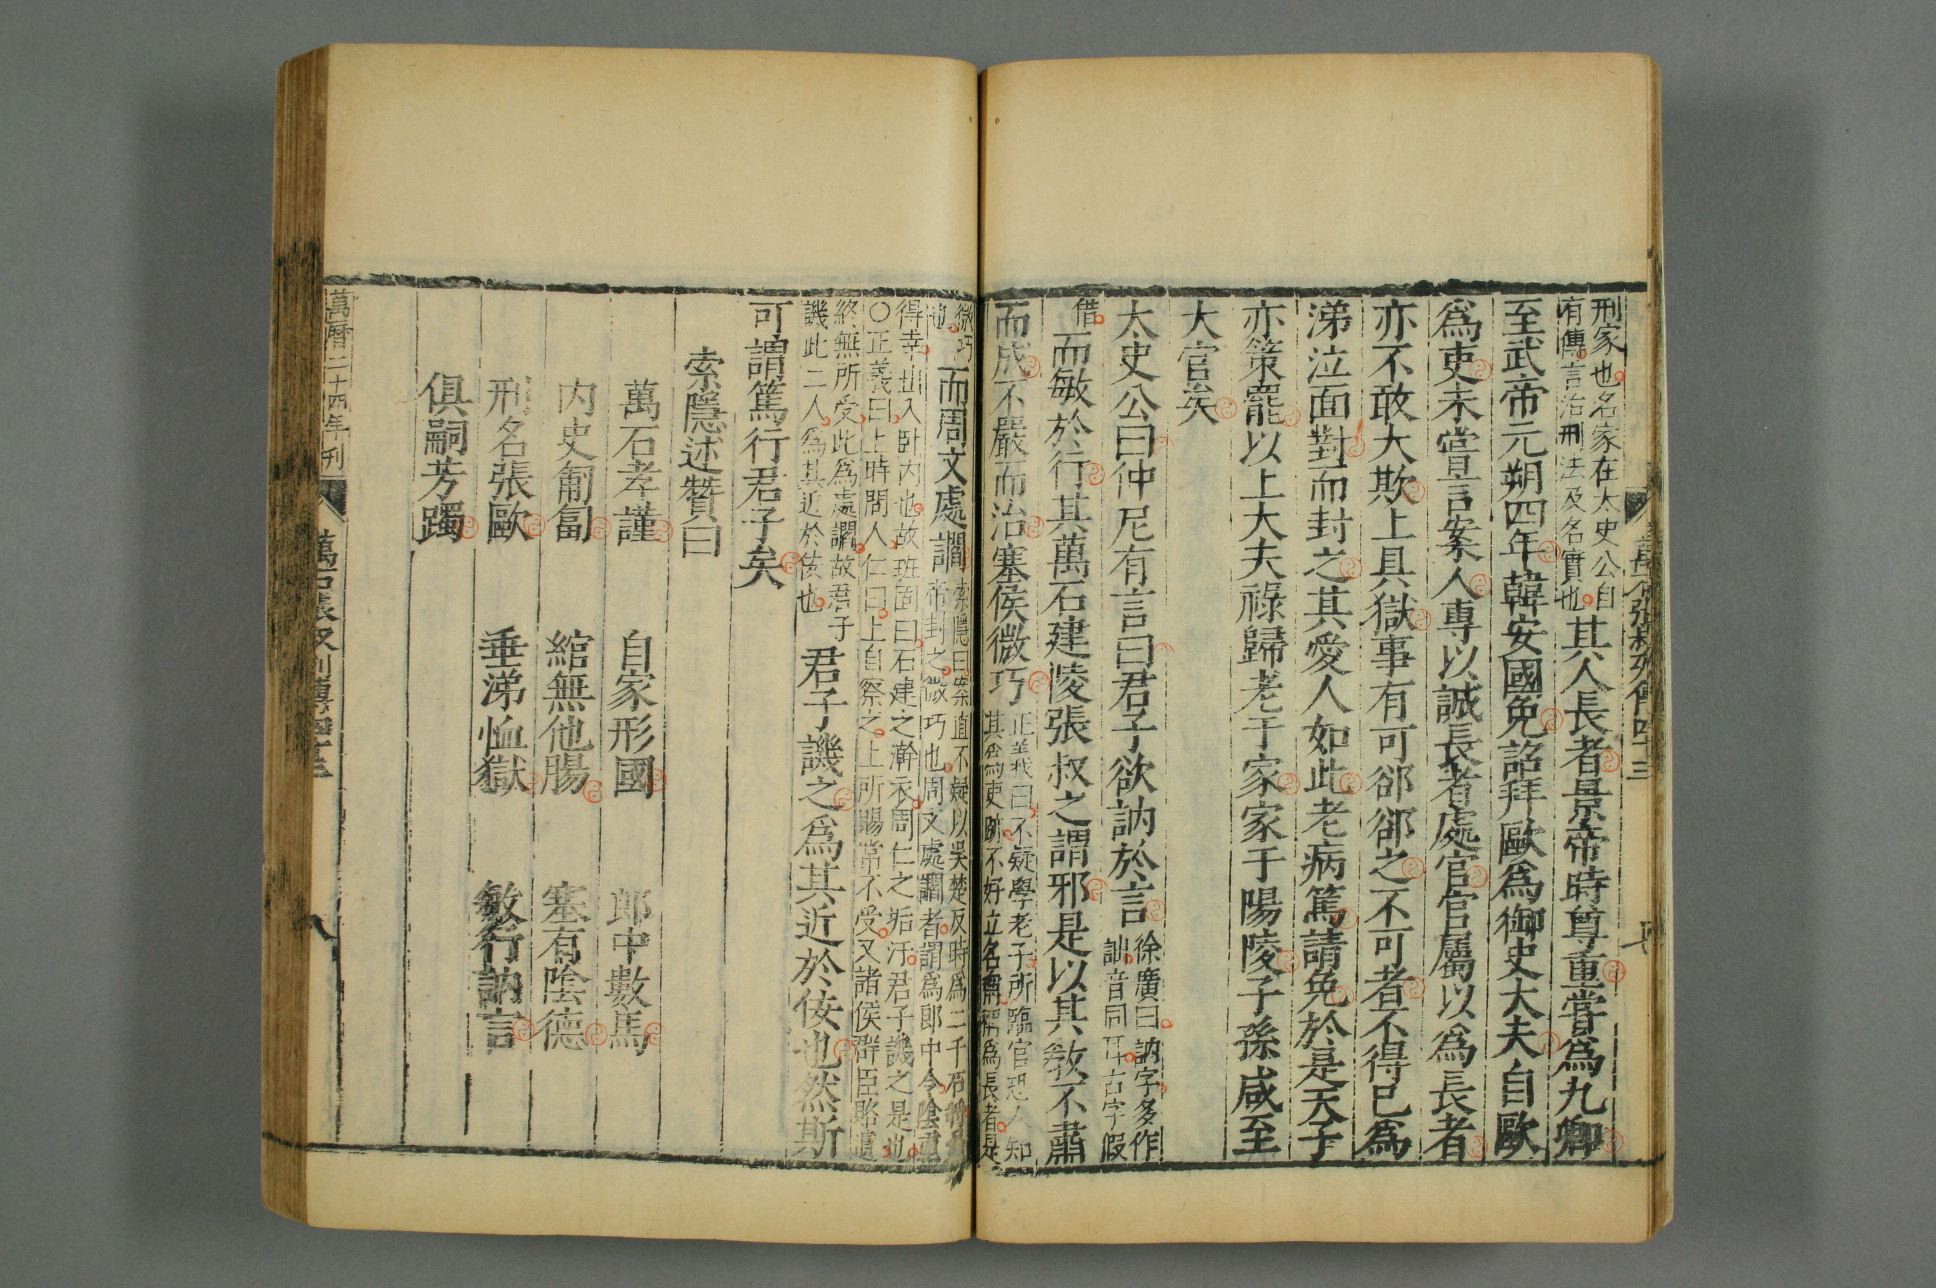 刑家也名家在太史公自
有傳言治刑法及名實也
其人長者景帝時尊重嘗爲九卿
至武帝元朔四年韓安國免詔拜歐爲御史大夫自歐
爲吏未嘗言案人專以誠長者處官官屬以爲長者
亦不敢大欺上具獄事有可郤郤之不可者不得已爲
涕泣面對而封之其愛人如此老病篤請免於是天子
亦策罷以上大夫祿歸老于家家于陽陵子孫咸至
大官矣
太史公曰仲尼有言曰君子欲訥於言
徐廣曰訥字多作
詘音同耳古字假
借
而敏於行其萬石建陵張叔之謂邪是以其教不肅
而成不嚴而治塞侯微巧
正義曰不疑學老子所臨官恐人知
其爲吏跡不好立名稱稱爲長者是
微巧
也
而周文處讇
索隱曰案直不疑以吳楚反時爲二千石將
帝封之微巧也周文處讇者謂爲郎中令陰重
得幸出入卧内也故班固曰石建之澣衣周仁之垢汙君子譏之是也
〇正義曰上時問人仁曰上自察之上所賜常不受又諸侯群臣賂遺
終無所受此爲處讇故君子
譏此二人爲其近於佞也
君子譏之爲其近於佞也然斯
可謂篤行君子矣
索隱述贊曰
萬石孝謹 自家形國 郎中數馬
内史匍匐 綰無他腸 塞有陰德
刑名張歐 垂涕恤獄 敏行訥言
俱嗣芳躅
萬曆二十四年刊
萬石張叔列傳四十三
八